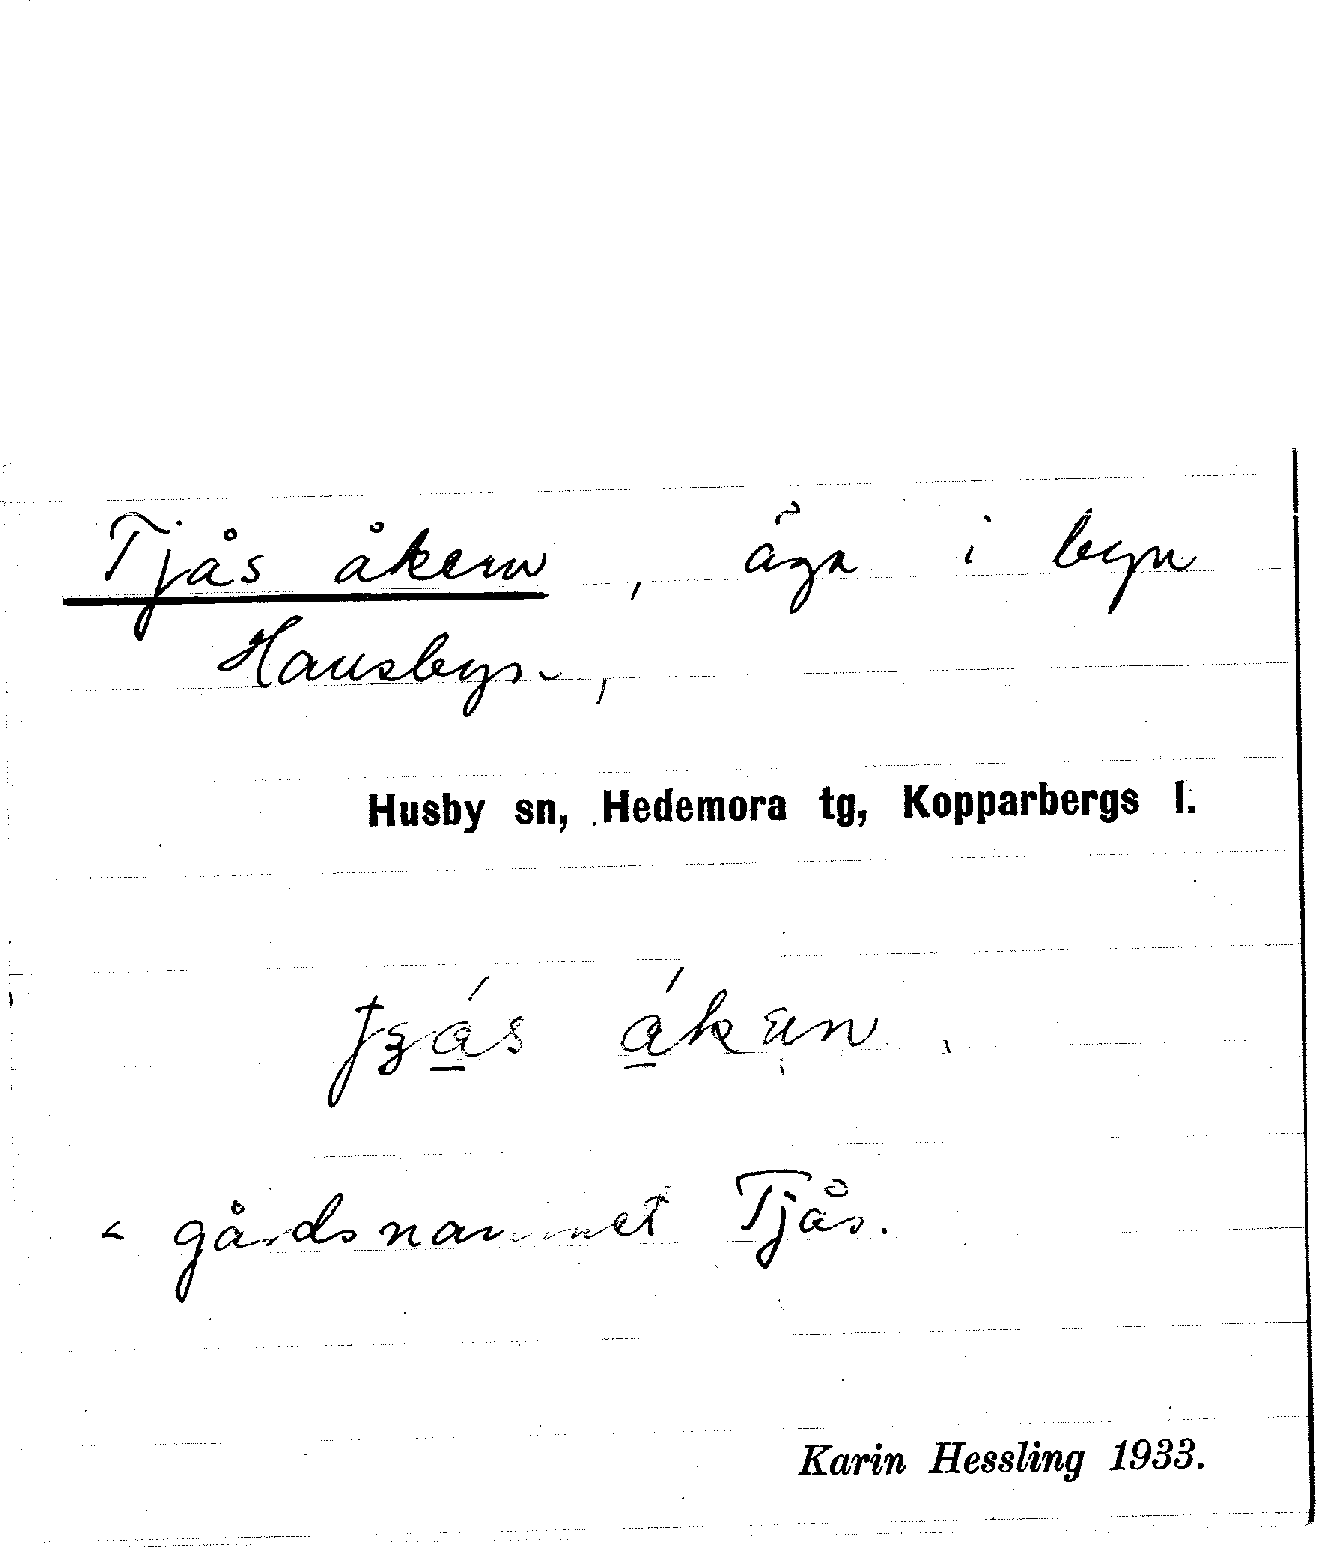 Tjås åkern, äga i byn
Hansbyn,
Husby sn, Hedemora tg, Kopparbergs l.
åkɐn.
< gårdsnamnet Tjås.
Karin Hessling 1933.